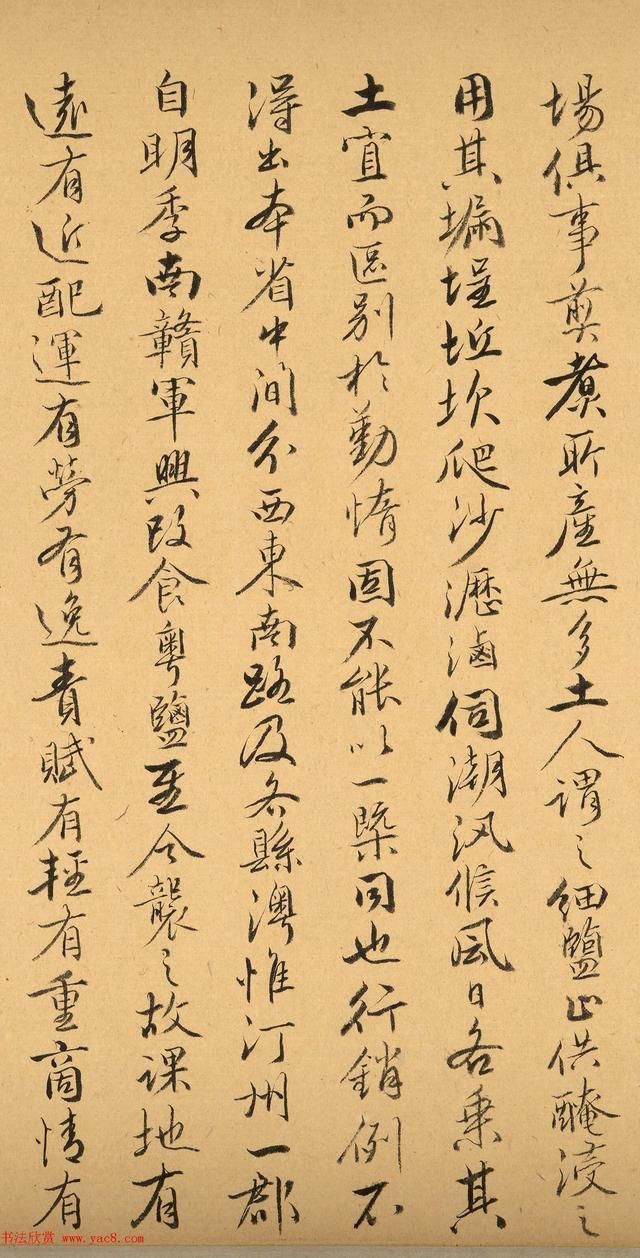 場俱事煎煮所產無多土人謂之細鹽止供醃浸之
用其埽埕坵坎爬沙瀝滷伺潮汛候風日各乘其
土宜而區別於勤惰固不能以一槩同也行銷例不
淂出本省中間分西東南路及各縣澳惟汀州一郡
自明季南贛軍興改食粵鹽至今襲之故課地有
遠有近配運有勞有逸責賦有輕有重商情有
书法欣赏 www.yac8.com